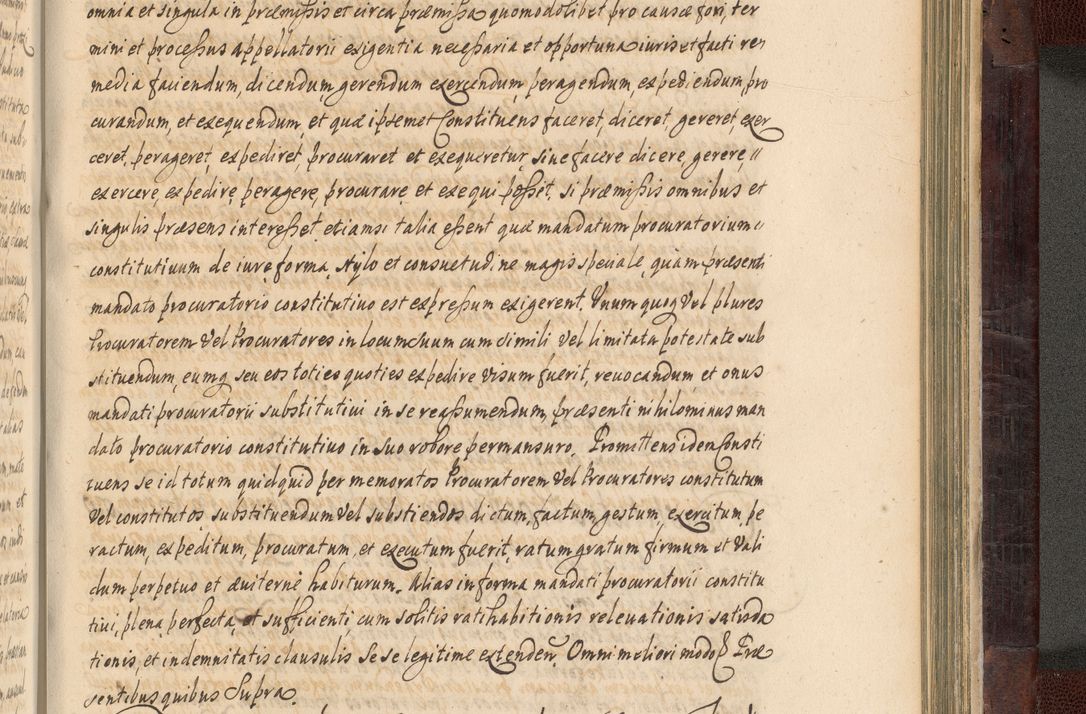 omnia et singula in præmissis et circa præmissa quomodolibet pro causæ fori, ter
mini et processus appellatorii exigentia necessaria et opportuna iuris et facti re
media faciendum, dicendum, gerendum exercendum, peragendum, expediendum, pro
curandum, et exequendum, et quæ ipsemet Constituens faceret, diceret, gereret, exer
ceret, perageret, expediret, procuraret et exequeretur, sive facere dicere, gerere,
exercere, expedire, peragere, procurare, et exequi posset, si præmissis omnibus et
singulis præsens interesset etiamsi talia essent quæ mandatum procuratorium
constitutiuum de iure forma, stylo et consuetudine magis speciale, quam præsenti
mandato procuratorio constitutiuo est expressum exigerent. Vnumquoq Vel plures
Procuratorem Vel Procuratores in locum suum cum simili Vel limitata potestate sub
stituendum, eumq seu eos toties quoties expedire visum fuerit, reuocandum et onus
mandati procuratorii substitutiui in se reassumendum, præsenti nihilominus man
dato procuratorio constitutiuo in suo robore permansuro. Promittens idem Consti
tuens se id totum quidquid per memoratos Procuratorem Vel Procuratores constitutum
Vel constitutos substituendum Vel substiendos dictum, factum, gestum, exercitum, pe
ractum, expeditum, procuratum, et executum fuerit, ratum gratum firmum et Vali
dum perpetuo et æuiterne habiturum. Alias in forma mandati procuratorii constitu
tiui, plena perfecta, et sufficienti cum solitis ratihabitionis releuationis satisda
tionis, et indemnitatis clausulis se se legitime extenden. Omni meliori modo Præ
sentibus quibus Supra.